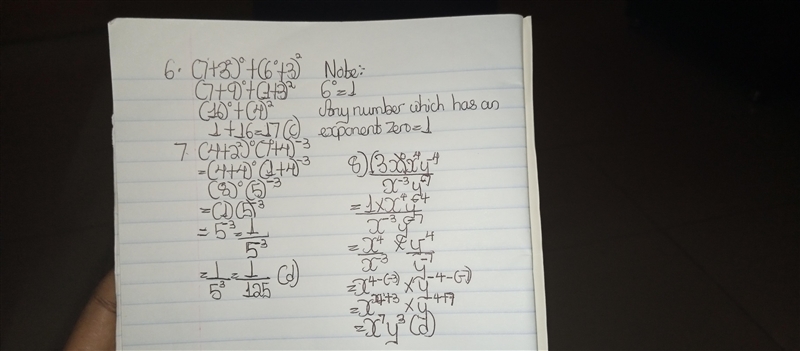 6. (7+3²)⁰+(6⁰+3)²
(7+9)⁰+(1+3)²
(16)⁰+(4)²
1+16=17(c)
Note:-
6⁰=1
Any number which has an
exponent zero=1
7. (4+2²)⁰(7⁰+4)⁻³
=(4+4)⁰(1+4)⁻³
(8)⁰(5)⁻³
=(1)(5)⁻³
=5⁻³=1/5³
=1/5³=1/125 (d)
8)(3x)⁰x⁴y⁻⁴/x⁻³y⁻⁷
=1×x⁴y⁻⁴/x⁻³y⁻⁷
=x⁴/x⁻³×y⁻⁴/y⁻⁷
=x⁴⁻⁽⁻³⁾×y⁻⁴⁻⁽⁻⁷⁾
=x⁴⁺³×y⁻⁴⁺⁷
=x⁷y³(d)